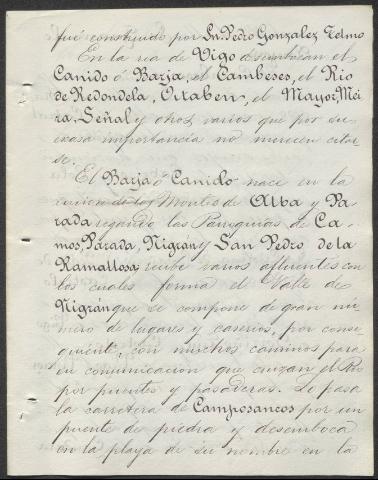 fué construido por Sn. Pedro Gonzalez Telmo
En la ria de Vigo desembocan el
Canido ó Barja, el Cambeses, el Rio
de Redondela, Oitaben, el Mayor, Mei
ra, Señal y otros varios que por su
escasa importancia no merecen citar
se.
El Barja ó Canido nace en la
union de los Montes de Alba y Pa
rada regando las Parroquias de Ca-
mos, Parada, Nigran y San Pedro de la
Ramallosa, recibe varios afluentes con
los cuales forma el Valle de
Nigrán que se compone de gran nú
mero de lugares y caserios, por conse
guiente, con muchos caminos para
su comunicacion que cruzan el Rio
por puentes y pasaderas. Le pasa
la carretera de Camposancos por un
puente de piedra y desemboca
en la playa de su nombre en la